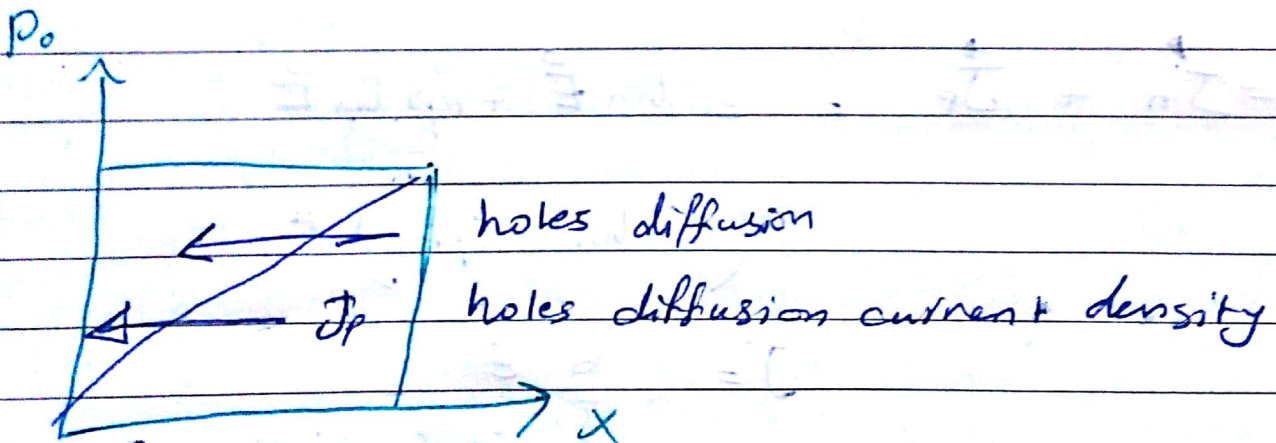 P₀
holes diffusion
Jₚ holes diffusion current density
x